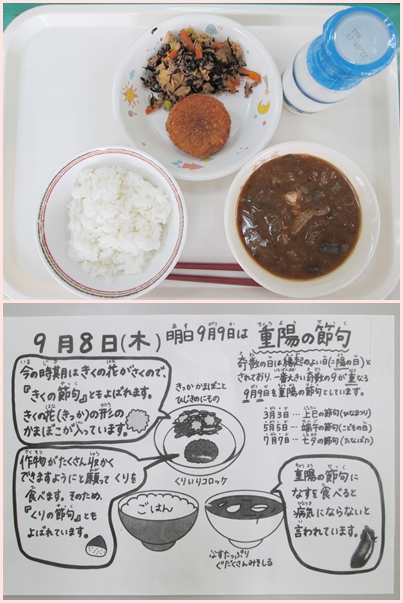 9月8日(木) 明日9月9日は 重陽の節句
今の時期はきくの花がさくので、
『きくの節句』ともよばれます。
きくの花(きっか)の形の
かまぼこが入っています。
奇数の日は縁起のよい日(=陽の日)と
されており、一番大きい奇数の9が重なる
9月9日を重陽の節句としています。
3月3日…上巳の節句(ひなまつり)
5月5日…端午の節句(こどもの日)
7月7日…七夕の節句(たなばた)
きっかかまぼこと
ひじきのにもの
くりいりコロッケ
作物がたくさん収かく
できますようにと願って くりを
食べます。そのため、
『くりの節句』とも
よばれています。
ごはん
なすたっぷり
ぐだくさんみそしる
重陽の節句に
なすを食べると
病気にならないと
言われています。